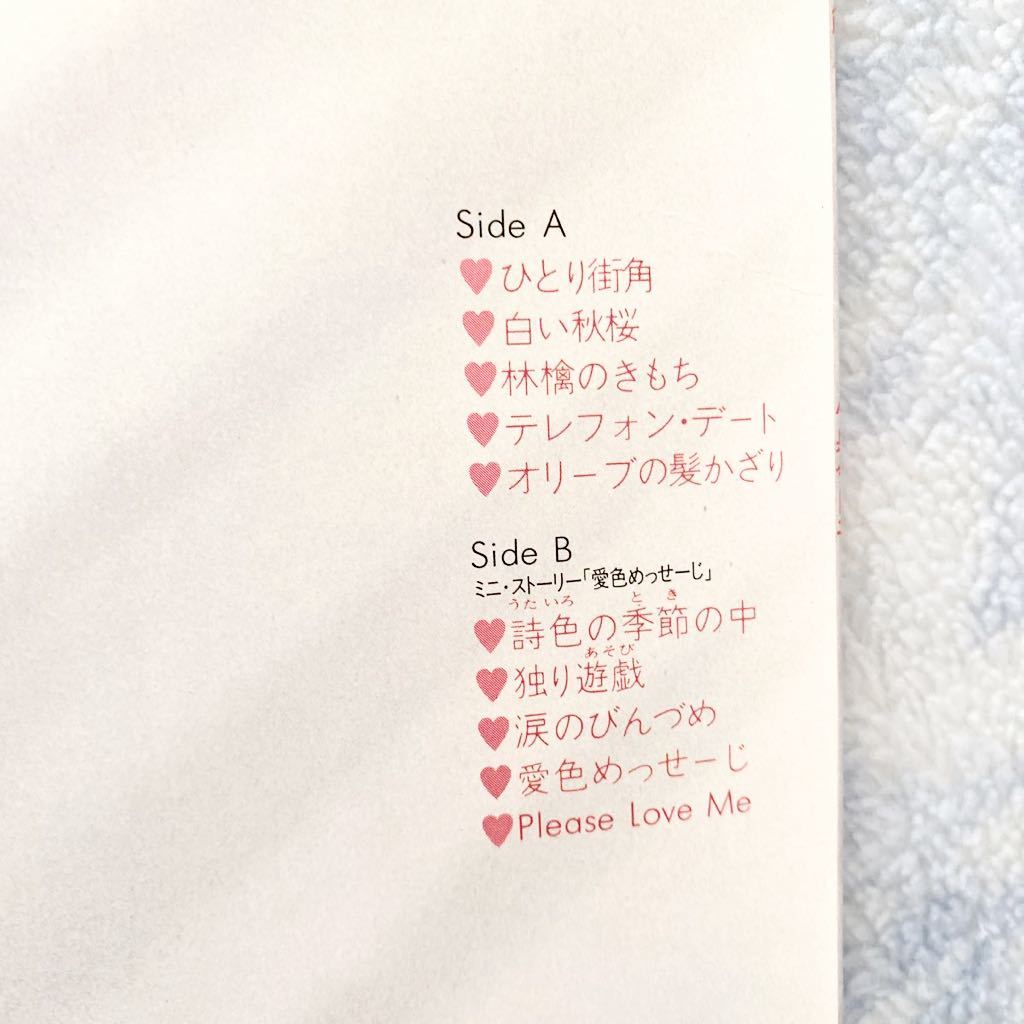 Side A
♥ひとり街角
♥白い秋桜
♥林檎のきもち
♥テレフォン・デート
♥オリーブの髪かざり
Side B
ミニ・ストーリー「愛色めっせーじ」
うたいろ とき
♥詩色の季節の中
あそび
♥独り遊戯
♥涙のびんづめ
♥愛色めっせーじ
♥Please Love Me